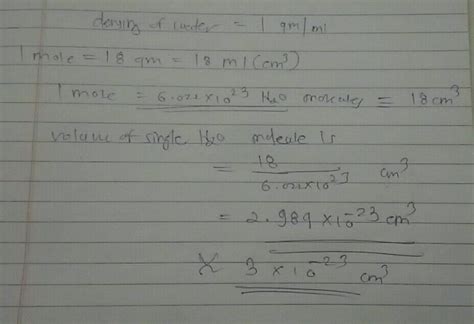 density of water = 1 gm/ml
1 mole = 18 gm = 18 ml (cm³)
1 mole = 6.022 × 10²³ H₂O molecules = 18 cm³
volume of single H₂O molecule is
= 18 / 6.022×10²³ cm³
= 2.989 × 10⁻²³ cm³
3 × 10⁻²³ cm³